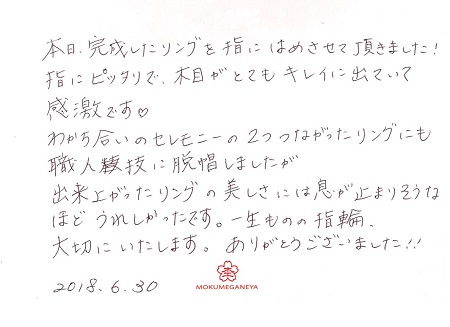 本日、完成したリングを指にはめさせて頂きました!
指にピッタリで、木目がとてもキレイに出ていて
感激です♡
わかち合いのセレモニーの2つつながったリングにも
職人技に脱帽しましたが
出来上がったリングの美しさには息が止まりそうな
ほどうれしかったです。一生ものの指輪、
大切にいたします。ありがとうございました!!
2018.6.30
MOKUMEGANEYA